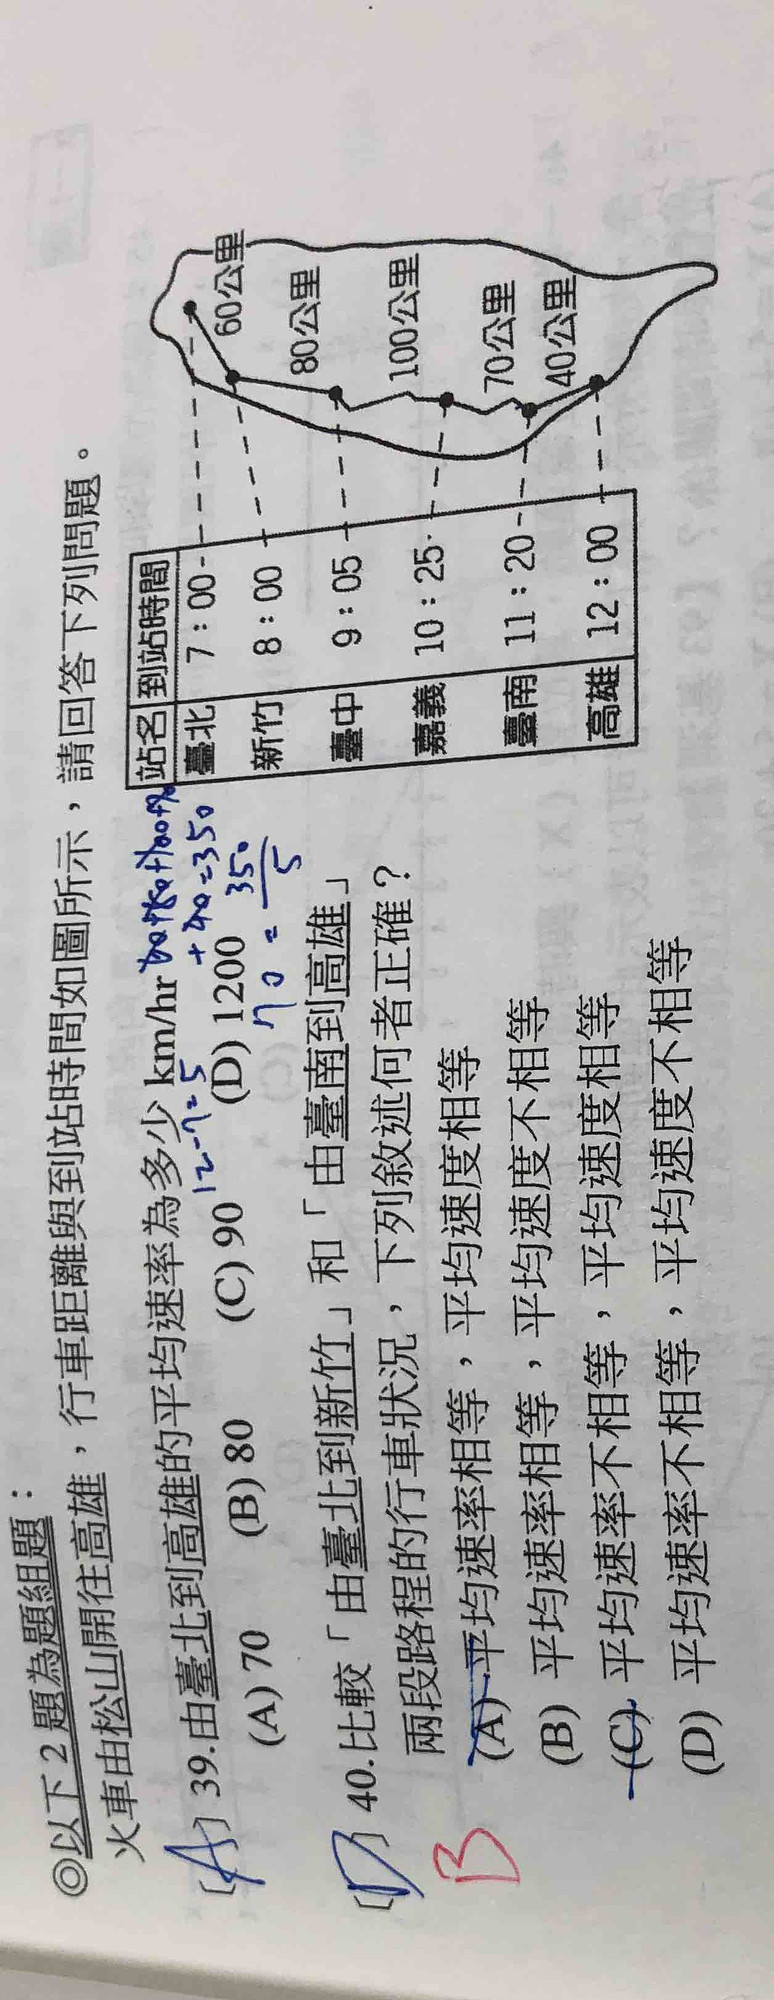 ◎以下2題為題組題：
火車由松山開往高雄，行車距離與到站時間如圖所示，請回答下列問題。
〔A〕39.由臺北到高雄的平均速率為多少 km/hr
(A) 70 (B) 80 (C) 90 (D) 1200
12-7=5
+40=350
70=350/5
〔D〕40.比較「由臺北到新竹」和「由臺南到高雄」
兩段路程的行車狀況，下列敘述何者正確？
B
(A) 平均速率相等，平均速度相等
(B) 平均速率相等，平均速度不相等
(C) 平均速率不相等，平均速度相等
(D) 平均速率不相等，平均速度不相等
站名 到站時間
臺北 7：00
新竹 8：00
臺中 9：05
嘉義 10：25
臺南 11：20
高雄 12：00
60公里
80公里
100公里
70公里
40公里